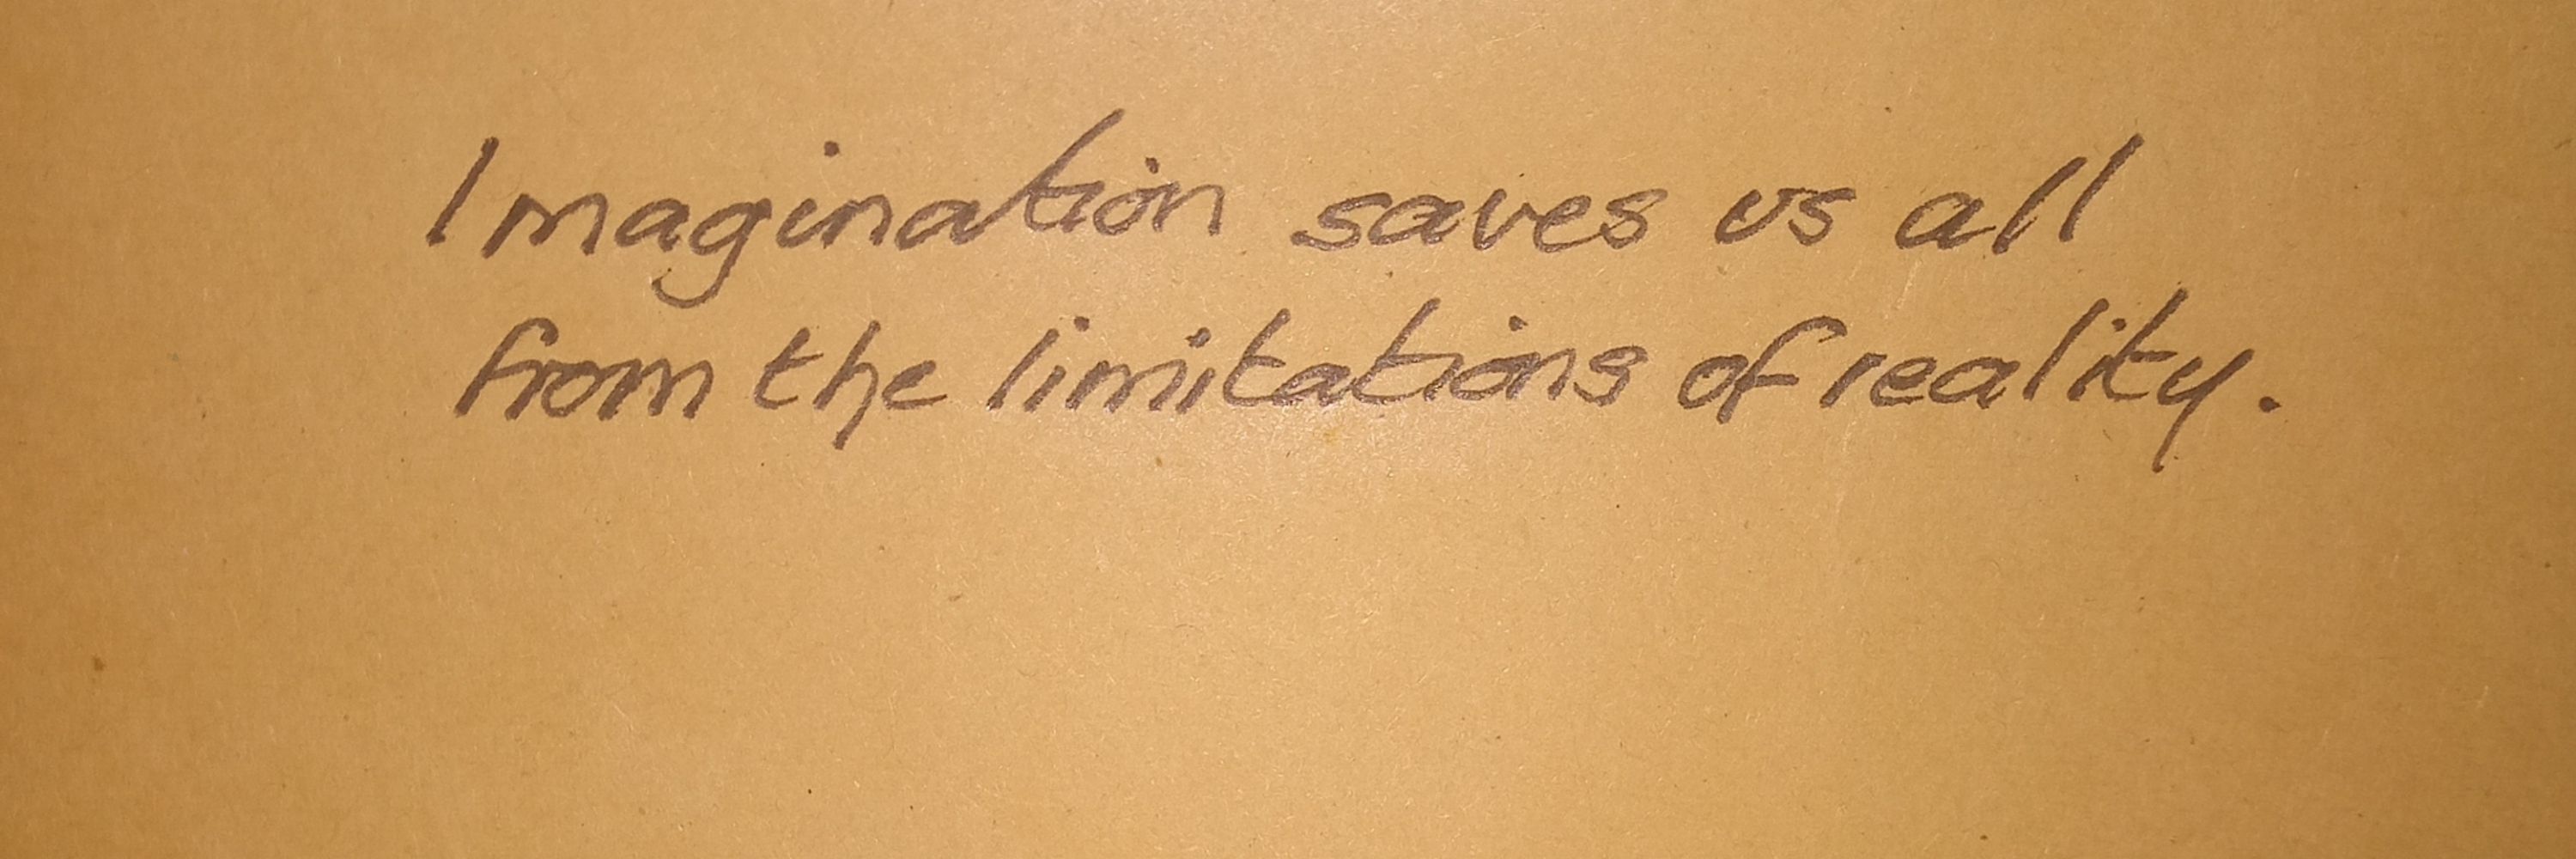 Imagination saves us all
from the limitations of reality.